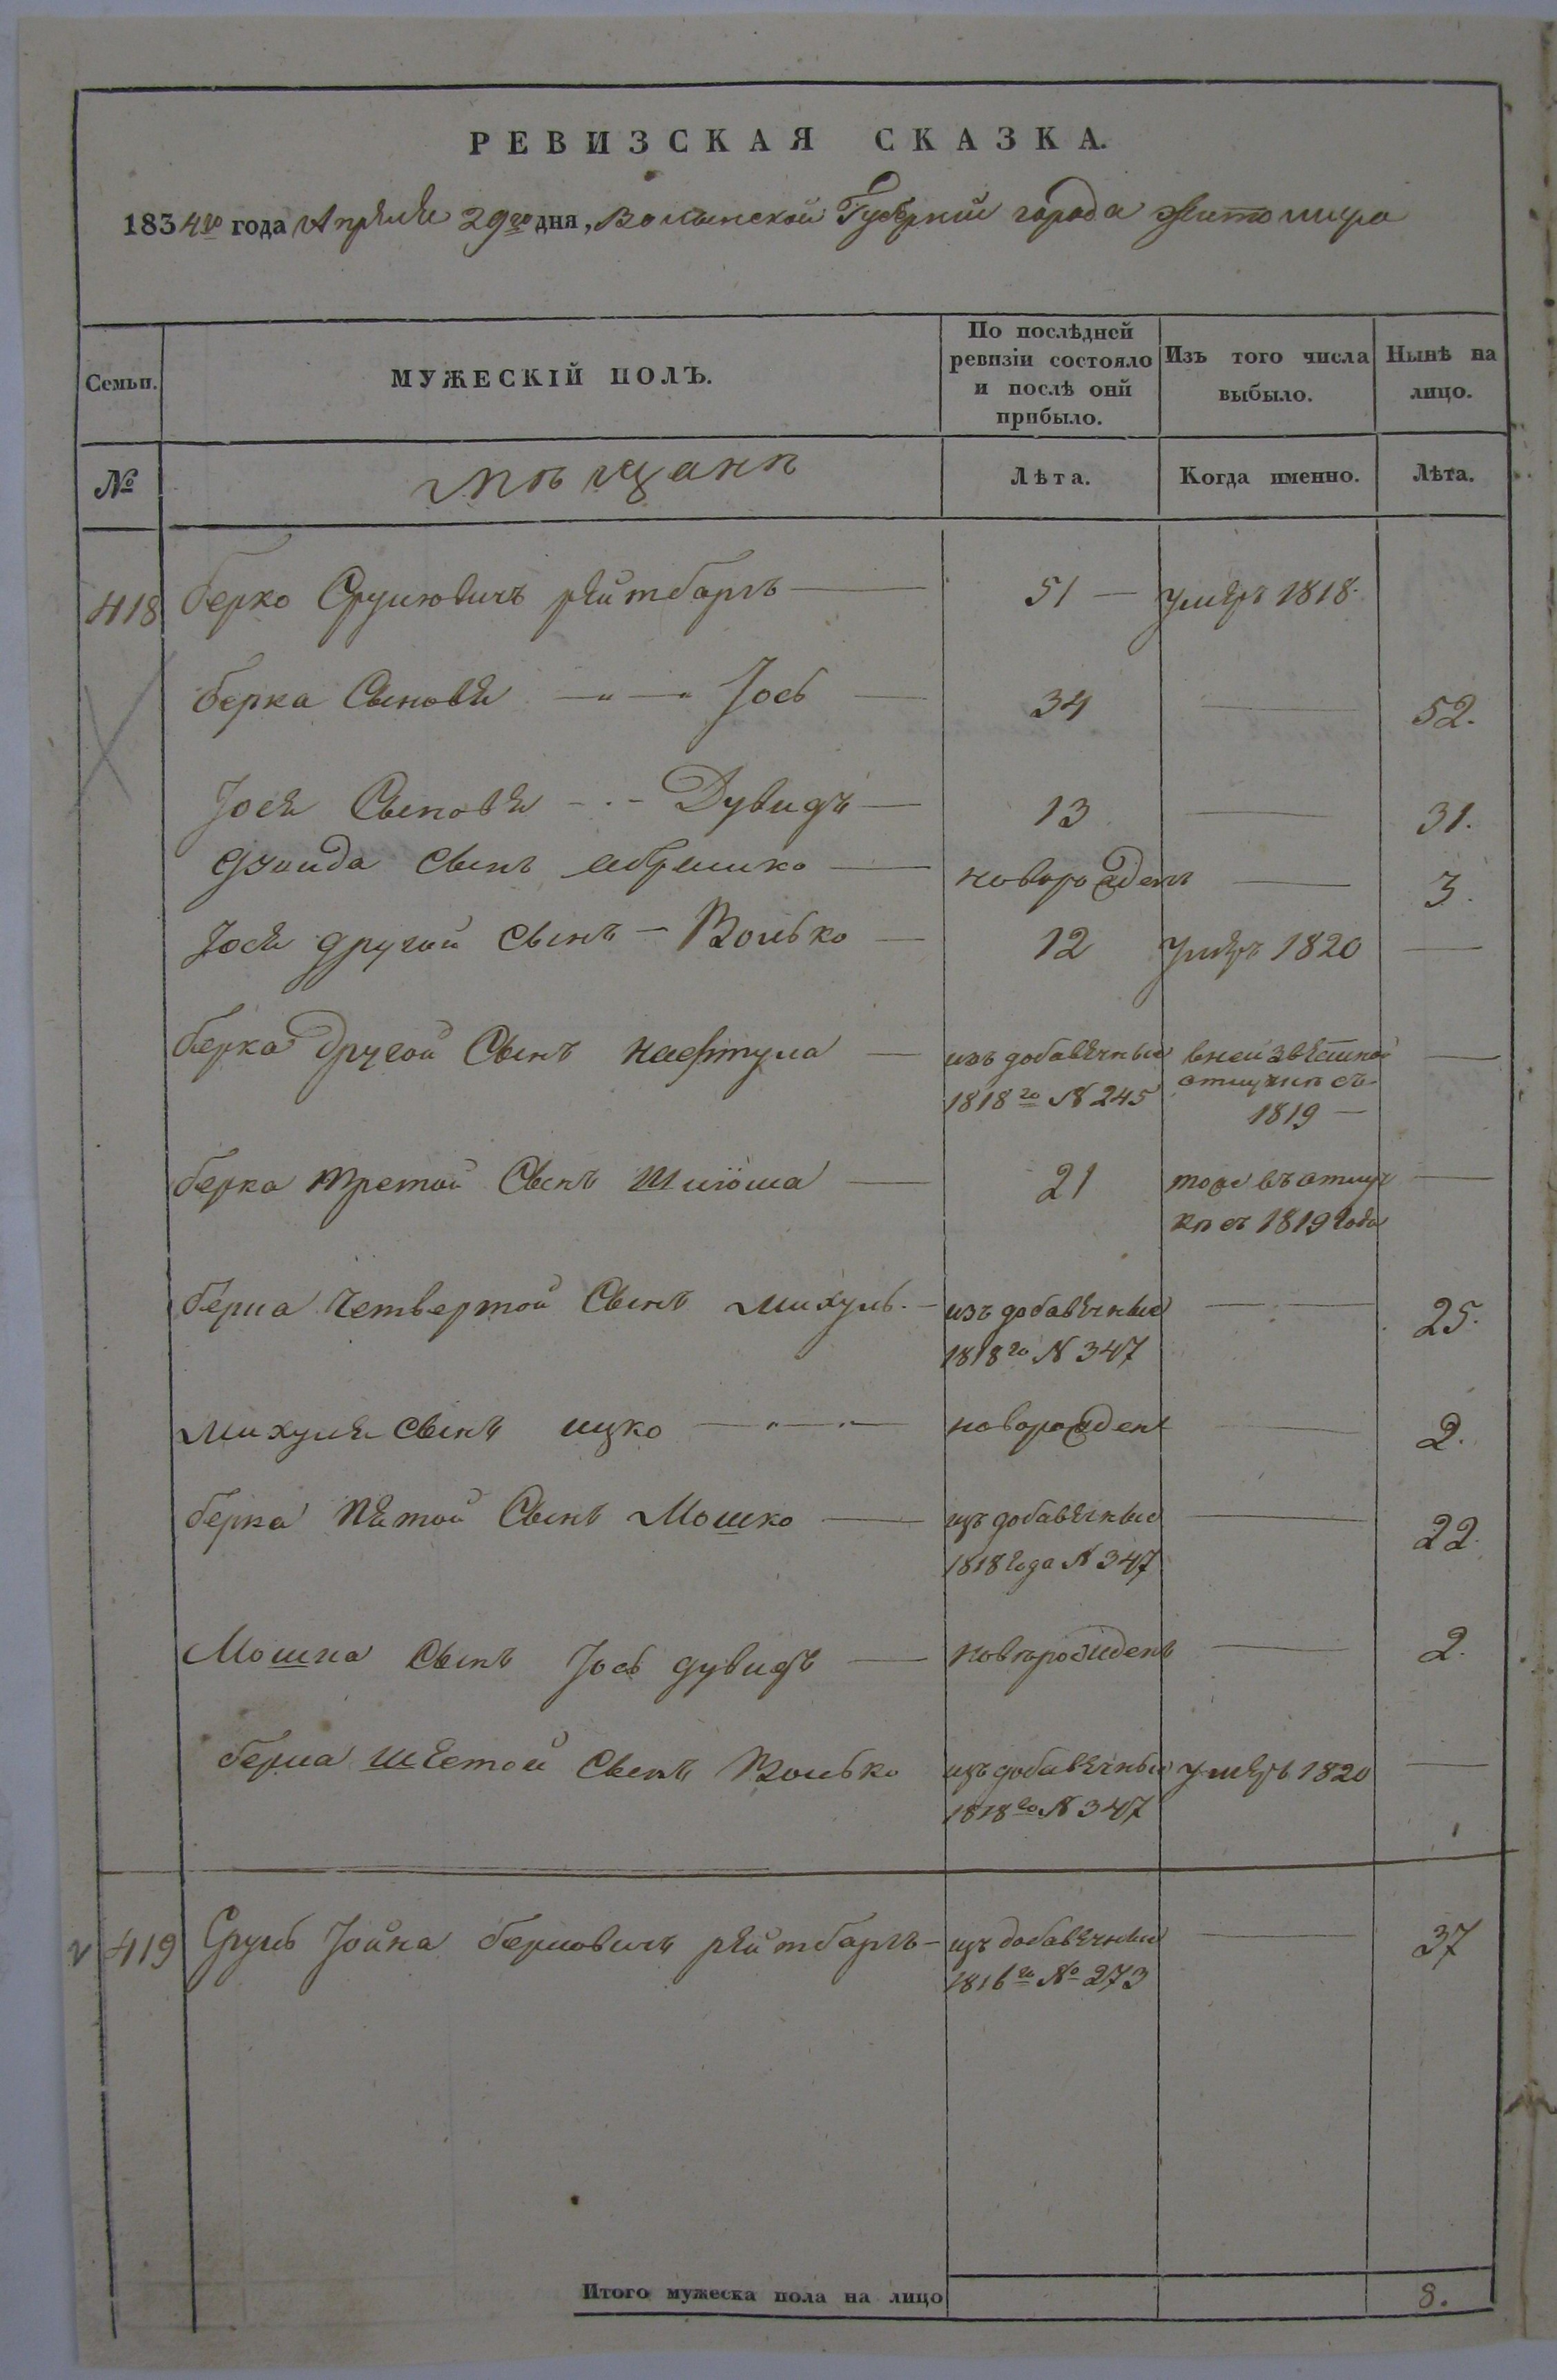 РЕВИЗСКАЯ СКАЗКА.
1834го года Апреля 29го дня, Волынской Губернии города Житомира
Семьи.
МУЖЕСКІЙ ПОЛЪ.
По послѣдней ревизіи состояло и послѣ онй прибыло.
Изъ того числа выбыло.
Нынѣ на лицо.
№
мѣщанѣ
Лѣта.
Когда именно.
Лѣта.
418 Берко Срулювичъ рейтбаргъ — 51 — умеръ 1818.
Берка Сыновя — Іось — 34 — 52.
Іося Сыновя — Дувидъ — 13 — 31.
Дувида Сынъ Абрамко — новорожденъ — 3.
Іося другой сынъ — Волько — 12 умеръ 1820 —
Берка другой Сынъ Нафтула — изъ добавочныхъ 1818го № 245 в неизвѣстной отлучкѣ съ 1819 —
Берка третой Сынъ Шлиома — 21 тоже въ отлучкѣ съ 1819 года —
Берка четвертой Сынъ Михуль — изъ добавочныхъ 1818го № 347 — 25.
Михуля сынъ ицко — новорожденъ — 2.
Берка пятой Сынъ Мошко — изъ добавочныхъ 1818 года № 347 — 22.
Мошка Сынъ Іось дувидъ — новорожденъ — 2.
Берка шестой Сынъ Волько изъ добавочныхъ 1818го № 347 умеръ 1820 —
v 419 Сруль Іойна Берковичъ рейтбаргъ — изъ добавочныхъ 1816го № 273 — 37
Итого мужеска пола на лицо 8.